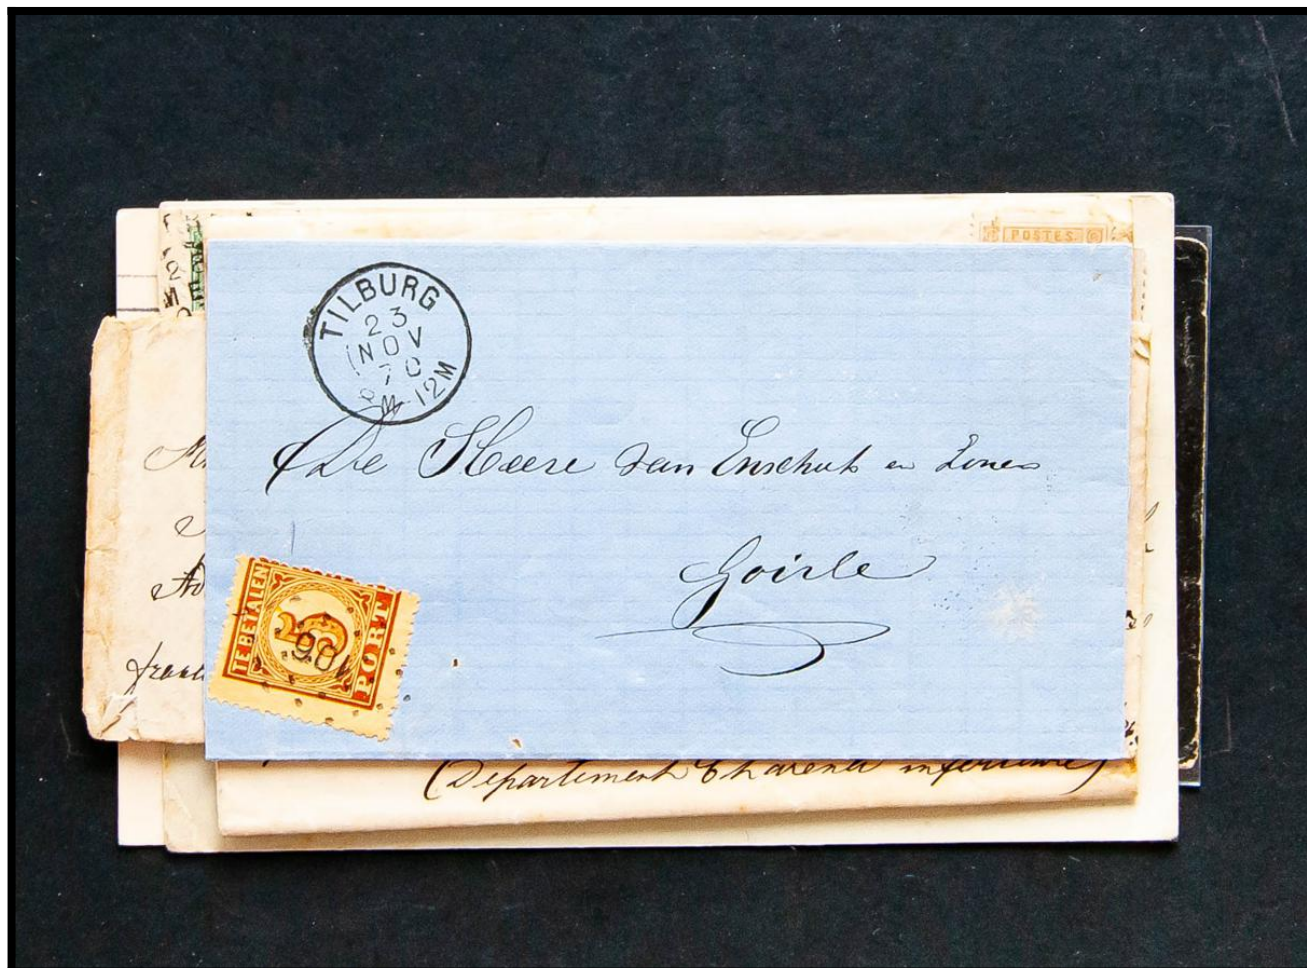 POSTES
2
TILBURG
23
NOV
70
12M
De Heere van Enschut en Zonen
Goirle
TE BETALEN
5
PORT
(Departement Charente inferieure)